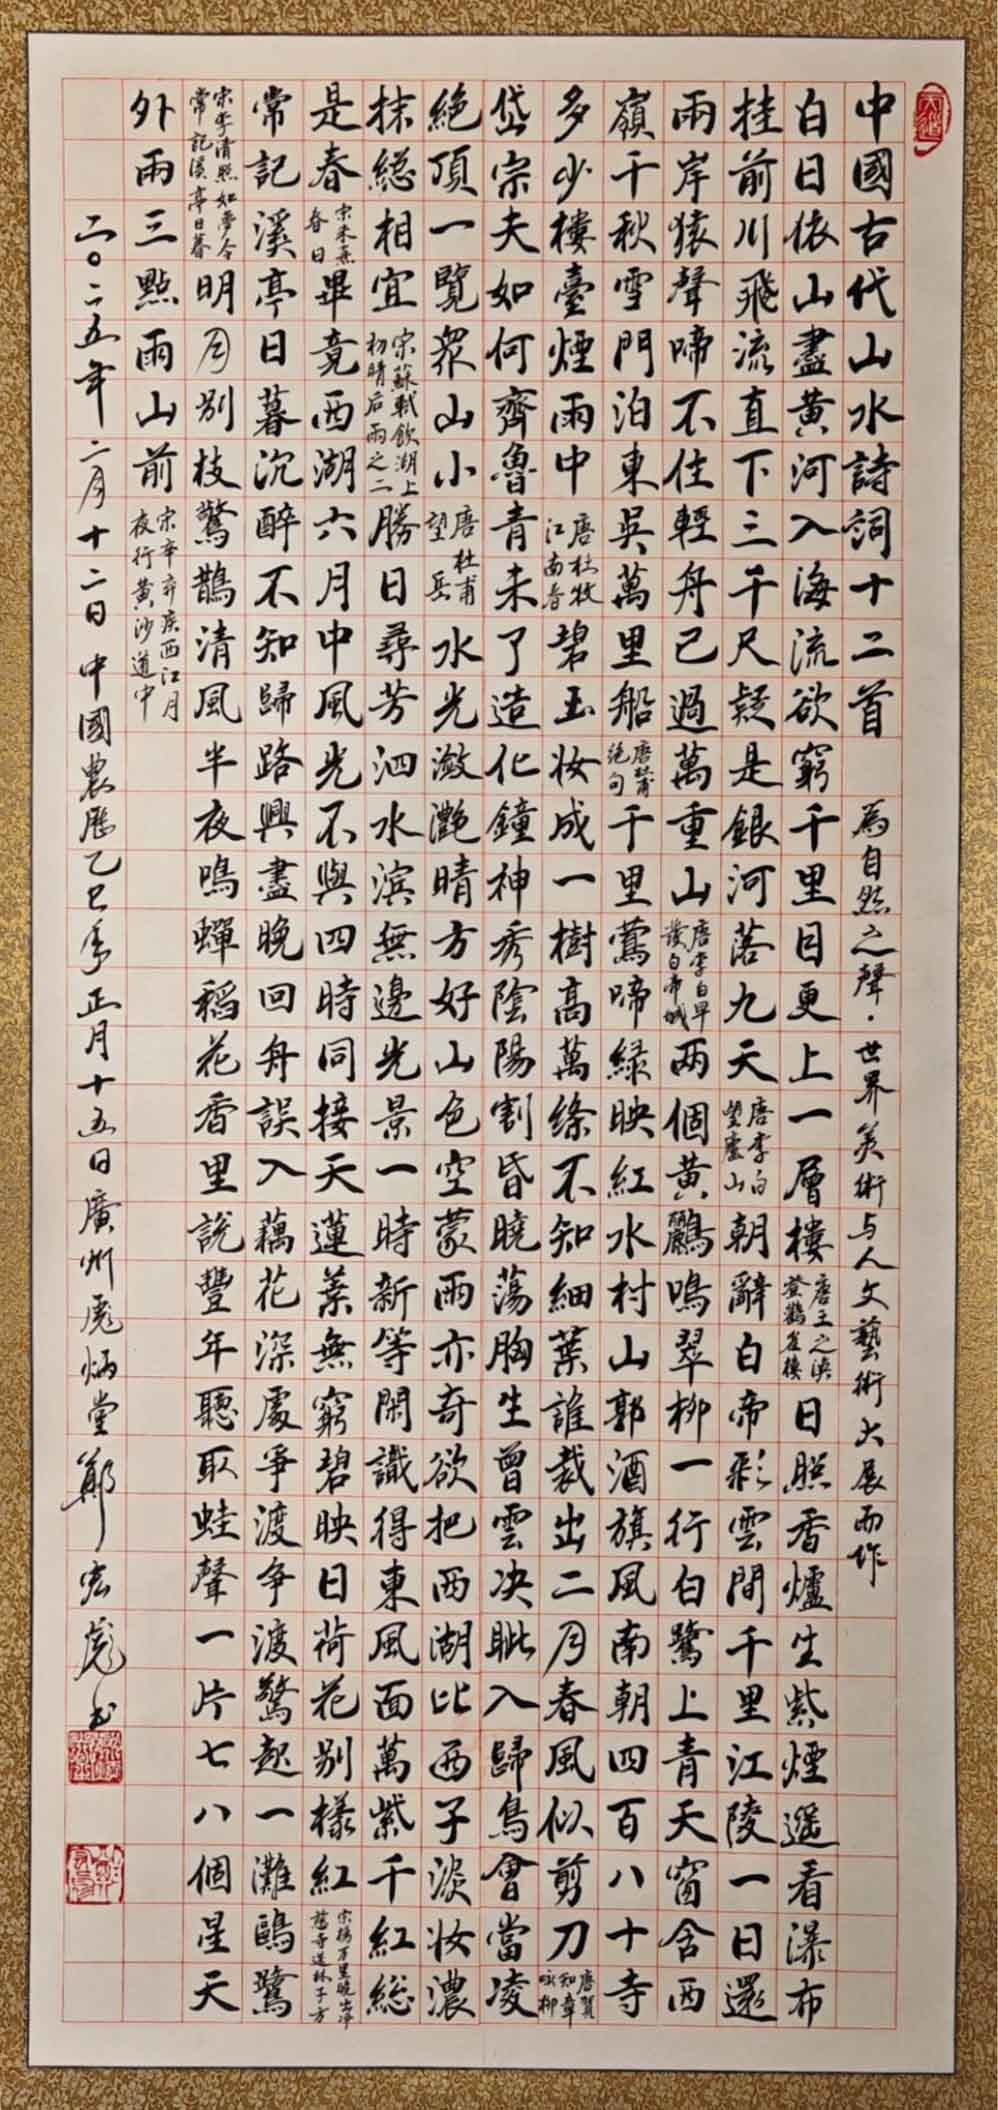 中國古代山水詩詞十二首 為自然之聲·世界美術与人文藝術大展而作
白日依山盡黄河入海流欲窮千里目更上一層樓 唐王之渙登鸛雀樓 日照香爐生紫煙遥看瀑布
挂前川飛流直下三千尺疑是銀河落九天 唐李白望廬山 朝辭白帝彩雲間千里江陵一日還
兩岸猿聲啼不住輕舟已過萬重山 唐李白早發白帝城 两個黄鸝鳴翠柳一行白鷺上青天窗含西
嶺千秋雪門泊東吳萬里船 唐杜甫絶句 千里鶯啼緑映紅水村山郭酒旗風南朝四百八十寺
多少樓臺煙雨中 唐杜牧江南春 碧玉妆成一樹高萬絛不知細葉誰裁出二月春風似剪刀 唐賀知章咏柳
岱宗夫如何齊魯青未了造化鐘神秀陰陽割昏曉蕩胸生曾雲决眦入歸鳥會當凌
絶頂一覽衆山小 唐杜甫望岳 水光瀲灧晴方好山色空蒙雨亦奇欲把西湖比西子淡妆濃
抹総相宜 宋蘇軾飲湖上初晴后雨之二 勝日尋芳泗水滨無邊光景一時新等閑識得東風面萬紫千紅総
是春 宋朱熹春日 畢竟西湖六月中風光不與四時同接天蓮葉無窮碧映日荷花别樣紅 宋楊万里曉出净慈寺送林子方
常記溪亭日暮沉醉不知歸路興盡晚回舟誤入藕花深處爭渡争渡驚起一灘鷗鷺
宋李清照如夢令常記溪亭日暮 明月别枝驚鵲清風半夜鳴蟬稻花香里說豐年聽取蛙聲一片七八個星天
外兩三點雨山前 宋辛弃疾西江月夜行黄沙道中
二〇二五年二月十二日中國農歷乙巳年正月十五日廣州彪炳堂鄭宏彪書